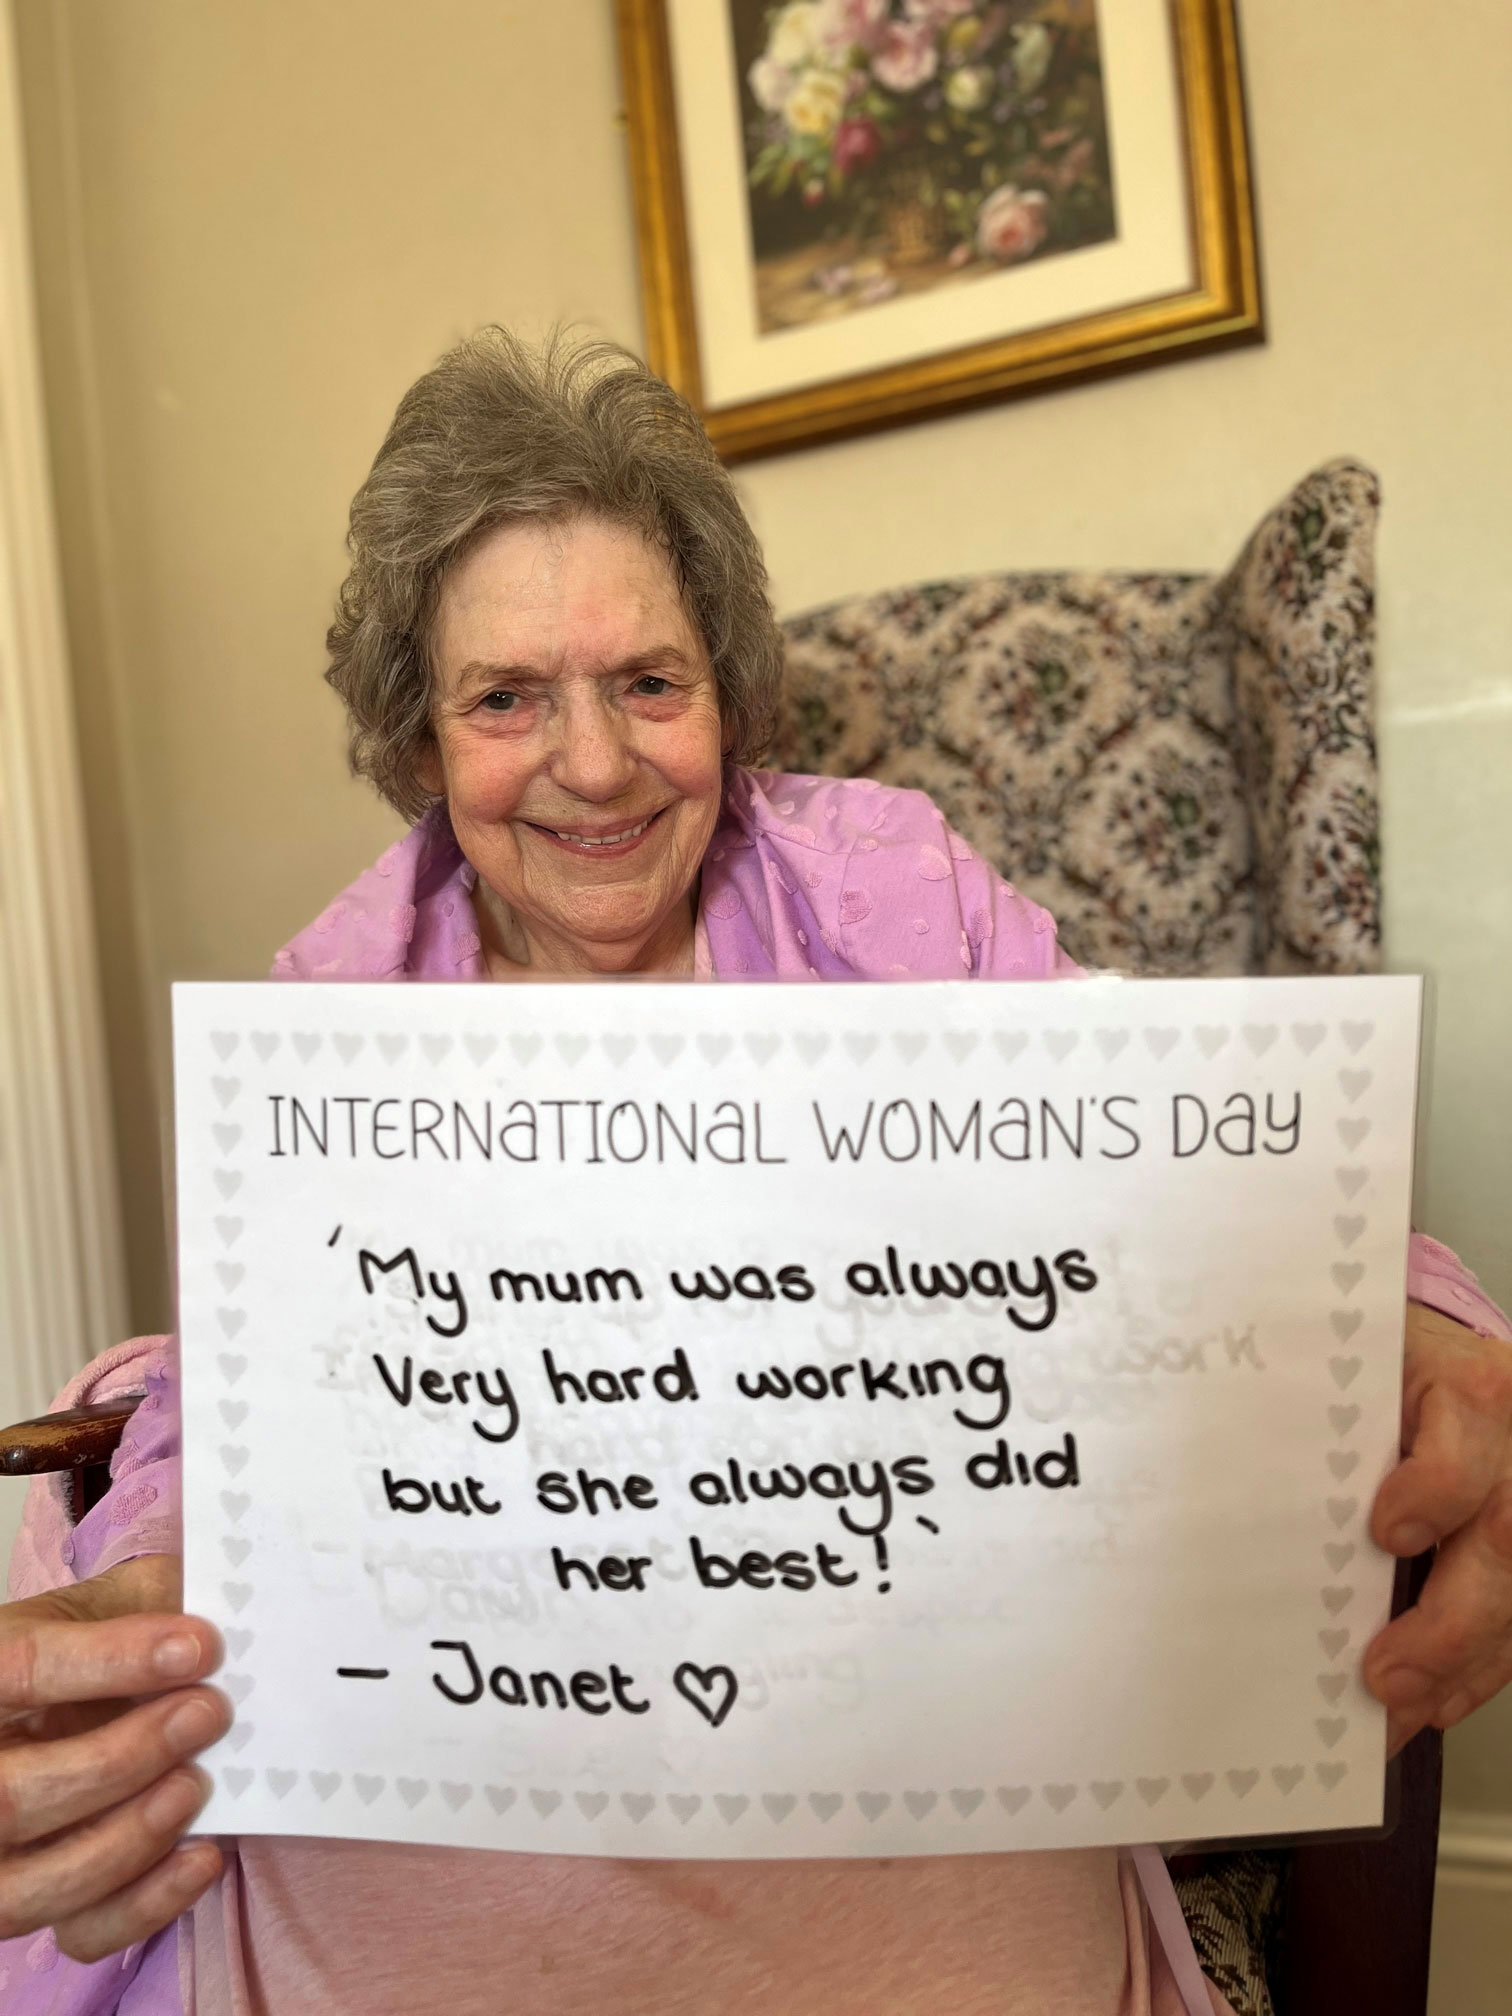 INTERNATIONAL WOMAN'S DAY
'My mum was always
Very hard working
but she always did
her best!'
- Janet ♡